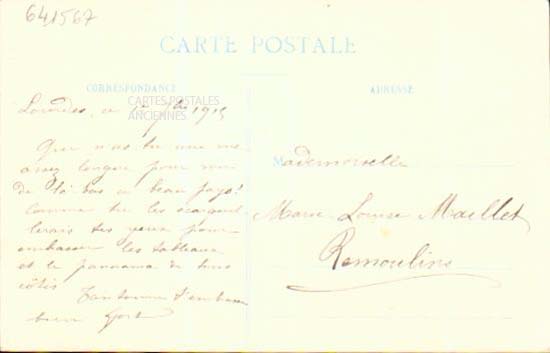 641567
CARTE POSTALE
CORRESPONDANCE
ADRESSE
CARTES POSTALES
ANCIENNES
Lourdes, ce 1915
Que n'as tu une vue
assez longue pour voir
de là bas ce beau pays!
Comme tu les écarquil
lerais tes yeux pour
embrasser les tableaux
et le panorama de tous
côtés
Tantonne t'embrasse
bien fort
Mademoiselle
Marie Louise Maillet
Remoulins